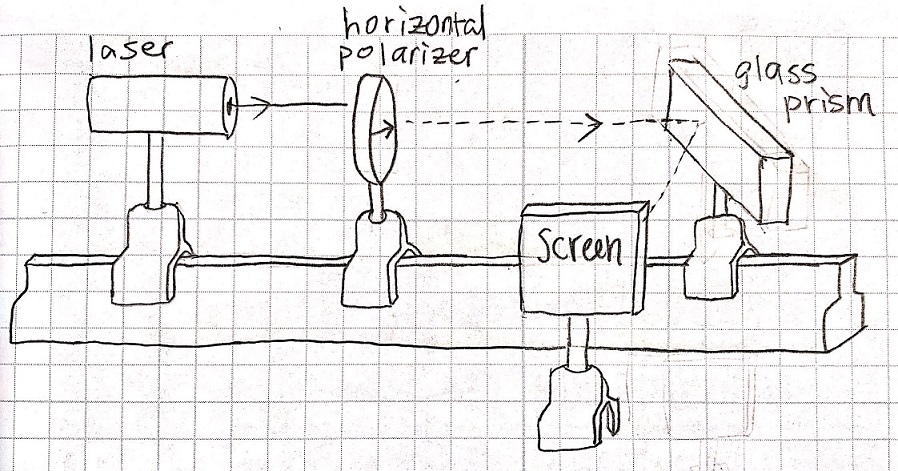 laser
horizontal
polarizer
glass
prism
Screen